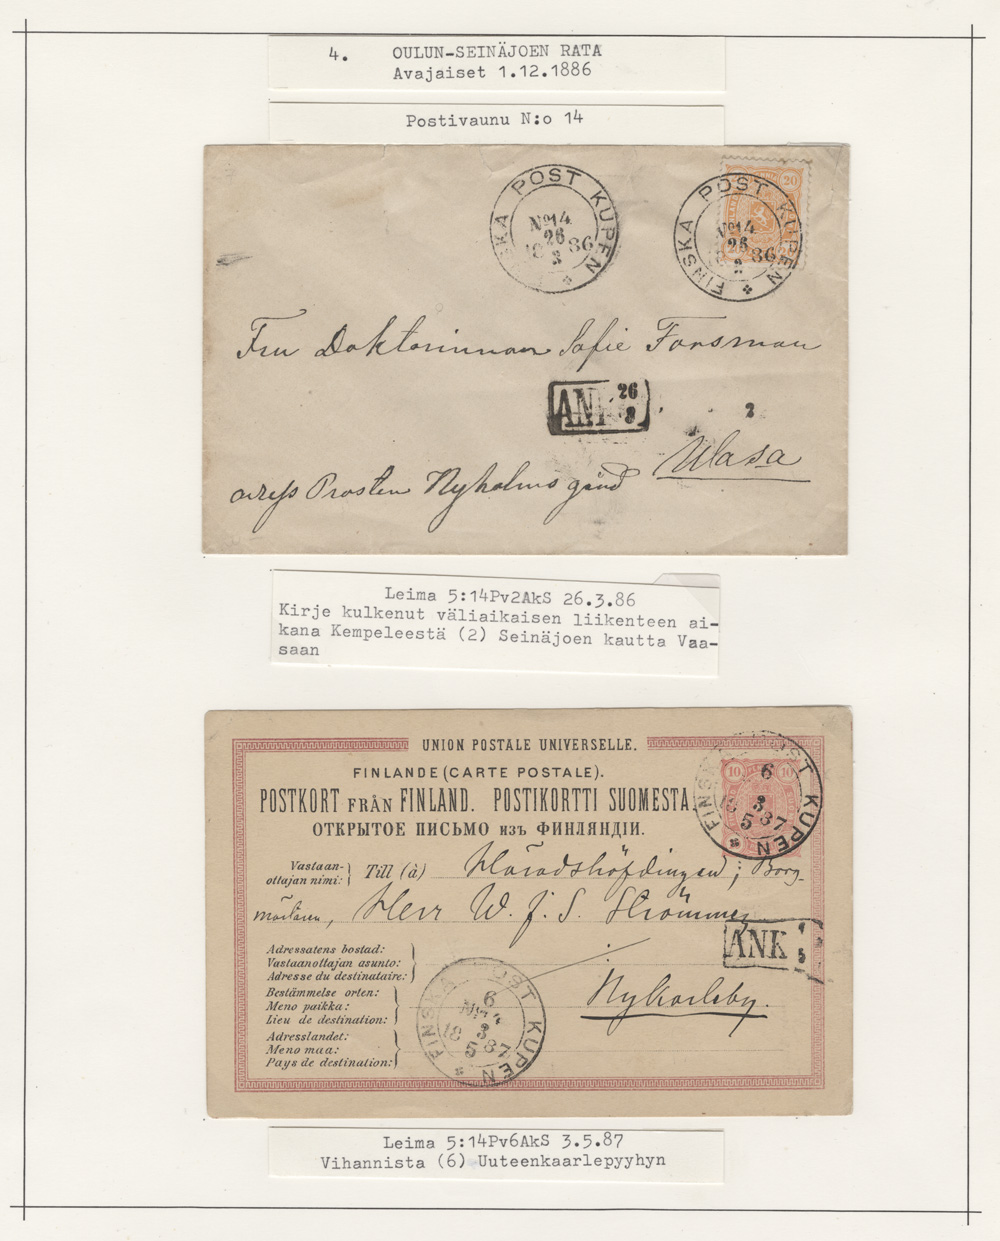 4. OULUN-SEINÄJOEN RATA
Avajaiset 1.12.1886
Postivaunu N:o 14
FINSKA POST KUPEN
No 14
26
18 86
3
20
FINSKA POST KUPEN
No 14
26
86
3
Fru Doktorinnan Sofie Forsman
ANK 26
3
2
Wasa
adress Prosten Nyholms gård
Leima 5:14Pv2AkS 26.3.86
Kirje kulkenut väliaikaisen liikenteen ai-
kana Kempeleestä (2) Seinäjoen kautta Vaa-
saan
UNION POSTALE UNIVERSELLE.
FINLANDE (CARTE POSTALE).
POSTKORT FRÅN FINLAND. POSTIKORTTI SUOMESTA.
ОТКРЫТОЕ ПИСЬМО изъ ФИНЛЯНДІИ.
10 10
FINSKA POST KUPEN
6
3
18 87
5
Vastaan-
ottajan nimi: Till (à) Häradshöfdingen, Borg-
mästaren, Herr W. J. S. Strömmer
ANK
5
Adressatens bostad:
Vastaanottajan asunto:
Adresse du destinataire:
Bestämmelse orten:
Meno paikka:
Lieu de destination:
Nykarleby.
Adresslandet:
Meno maa:
Pays de destination:
FINSKA POST KUPEN
6
3
18 87
5
Leima 5:14Pv6AkS 3.5.87
Vihannista (6) Uuteenkaarlepyyhyn